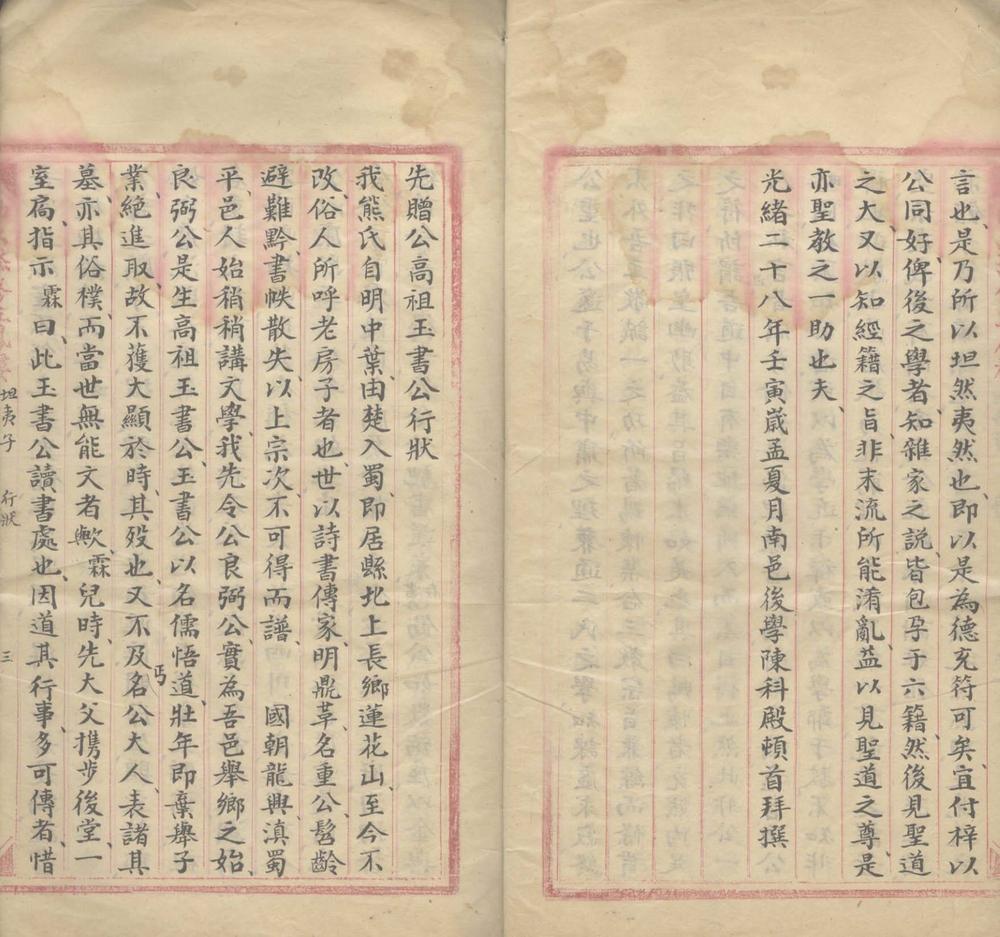 言也、是乃所以坦然夷然也、即以是為德充符可矣、宜付梓以
公同好、俾後之學者、知雜家之說、皆包孕于六籍、然後見聖道
之大、又以知經籍之旨、非末流所能淆亂、益以見聖道之尊、是
亦聖教之一助也夫、
光緒二十八年壬寅歲孟夏月南邑後學陳科殿頓首拜撰
先贈公高祖玉書公行狀
我熊氏自明中葉、由楚入蜀、即居縣北上長鄉蓮花山、至今不
改、俗人所呼老房子者也、世以詩書傳家、明鼎革、名重公、髫齡
避難黔、書帙散失、以上宗次、不可得而譜、國朝龍興、滇蜀
平、邑人始稍稍講文學、我先令公良弼公、實為吾邑舉鄉之始、
良弼公是生高祖玉書公、玉書公以名儒悟道、壯年即棄舉子
業、絕進取、故不獲大顯於時、其歿也、又不及丐名公大人、表諸其
墓、亦其俗樸、而當世無能文者歟、霖兒時、先大父攜步後堂一
室扃、指示霖曰、此玉書公讀書處也、因道其行事、多可傳者、惜
坦夷子 行狀 三